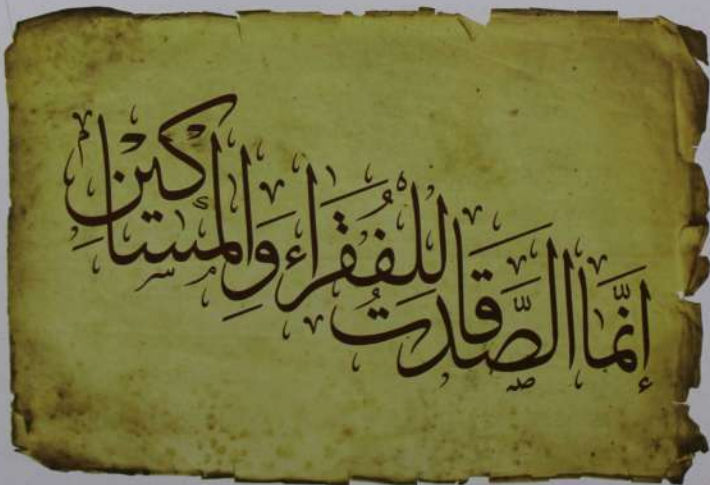 إِنَّمَا الصَّدَقَاتُ لِلْفُقَرَاءِ وَالْمَسَاكِينِ